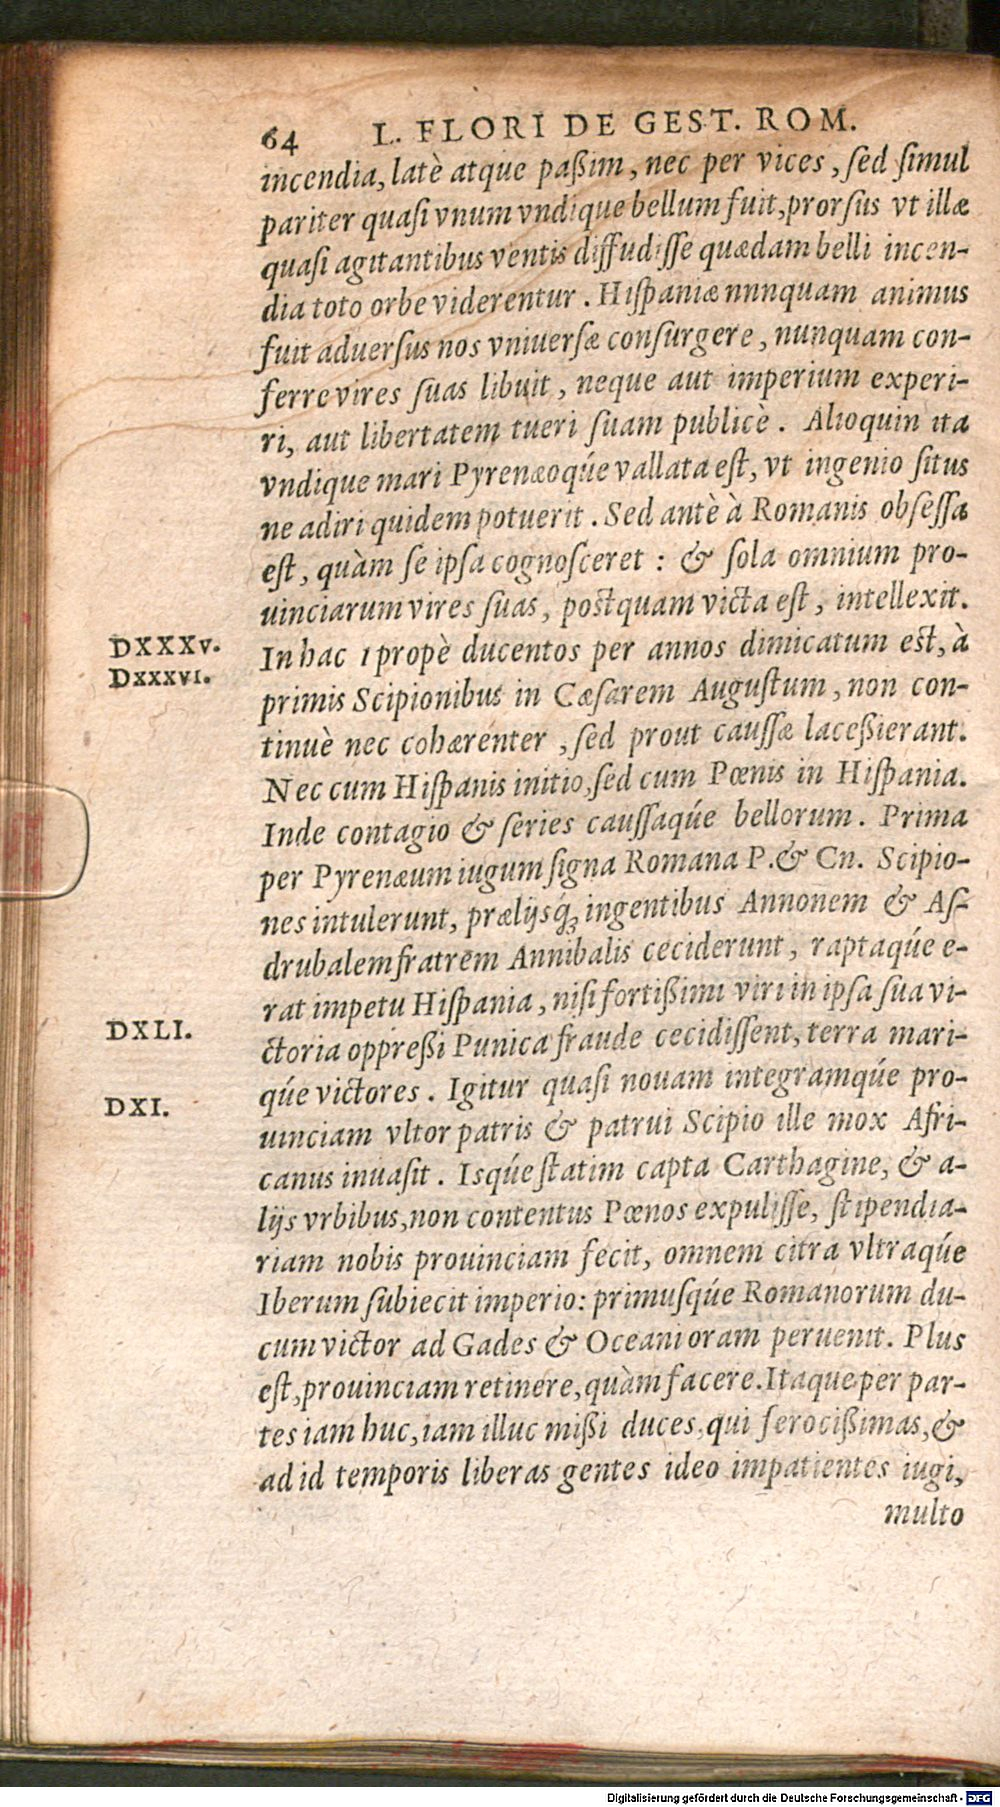 64 L. FLORI DE GEST. ROM.
incendia, latè atque paßim, nec per vices, ſed ſimul
pariter quaſi vnum vndique bellum fuit, prorſus vt illæ
quaſi agitantibus ventis diffudiſſe quædam belli incen-
dia toto orbe viderentur. Hiſpaniæ nnnquam animus
fuit aduerſus nos vniuerſæ conſurgere, nunquam con-
ferre vires ſuas libuit, neque aut imperium experi-
ri, aut libertatem tueri ſuam publicè. Alioquin ita
vndique mari Pyrenæoqúe vallata eſt, vt ingenio ſitus
ne adiri quidem potuerit. Sed antè à Romanis obſeſſa
eſt, quàm ſe ipſa cognoſceret: & ſola omnium pro-
uinciarum vires ſuas, poſtquam victa eſt, intellexit.
DXXXV. In hac 1 propè ducentos per annos dimicatum eſt, à
DXXXVI. primis Scipionibus in Cæſarem Auguſtum, non con-
tinuè nec cohærenter, ſed prout cauſſæ laceßierant.
Nec cum Hiſpanis initio, ſed cum Pœnis in Hiſpania.
Inde contagio & ſeries cauſſaqúe bellorum. Prima
per Pyrenæum iugum ſigna Romana P. & Cn. Scipio-
nes intulerunt, prælijsq́; ingentibus Annonem & Aſ-
drubalem fratrem Annibalis ceciderunt, raptaqúe e-
rat impetu Hiſpania, niſi fortißimi viri in ipſa ſua vi-
DXLI. ctoria oppreßi Punica fraude cecidiſſent, terra mari-
qúe victores. Igitur quaſi nouam integramqúe pro-
DXI. uinciam vltor patris & patrui Scipio ille mox Afri-
canus inuaſit. Isqúe ſtatim capta Carthagine, & a-
lijs vrbibus, non contentus Pœnos expuliſſe, ſtipendia-
riam nobis prouinciam fecit, omnem citra vltraqúe
Iberum ſubiecit imperio: primuſqúe Romanorum du-
cum victor ad Gades & Oceani oram peruenit. Plus
eſt, prouinciam retinere, quàm facere. Itaque per par-
tes iam huc, iam illuc mißi duces, qui ferocißimas, &
ad id temporis liberas gentes ideo impatientes iugi,
multo
Digitalisierung gefördert durch die Deutsche Forschungsgemeinschaft - DFG